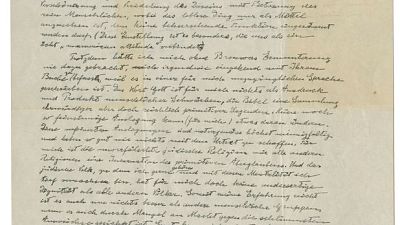 Verschönerung und Veredelung des Daseins mit Betonung des
rein Menschlichen, wobei das leblose Ding nur als Mittel
anzusehen ist, dem keine beherrschende Funktion eingeräumt
werden darf. (Diese Einstellung ist es besonders, die uns als ein
echt "unamerican attitude" verbindet.)
Trotzdem hätte ich mich ohne Brouwers Ermunterung
nie dazu gebracht, mich irgendwie eingehend mit Ihrem
Buche zu befassen, weil es in einer für mich unzugänglichen Sprache
geschrieben ist. Das Wort Gott ist für mich nichts als Ausdruck
und Produkt menschlicher Schwächen, die Bibel eine Sammlung
ehrwürdiger aber doch reichlich primitiver Legenden. Keine noch
so feinsinnige Auslegung kann (für mich) etwas daran ändern.
Diese verfeinerten Auslegungen sind naturgemäss höchst mannigfaltig
und haben so gut wie nichts mit dem Urtext zu schaffen. Für
mich ist die unverfälschte jüdische Religion wie alle anderen
Religionen eine Incarnation des primitiven Aberglaubens. Und das
jüdische Volk, zu dem ich gern gehöre und mit dessen Mentalität ich
tief verwachsen bin, hat für mich doch keine andersartige
Dignität als alle anderen Völker. Soweit meine Erfahrung reicht
ist es auch um nichts besser als andere menschliche Gruppen
wenn es auch durch Mangel an Macht gegen die schlimmsten
Auswüchse gesichert ist.